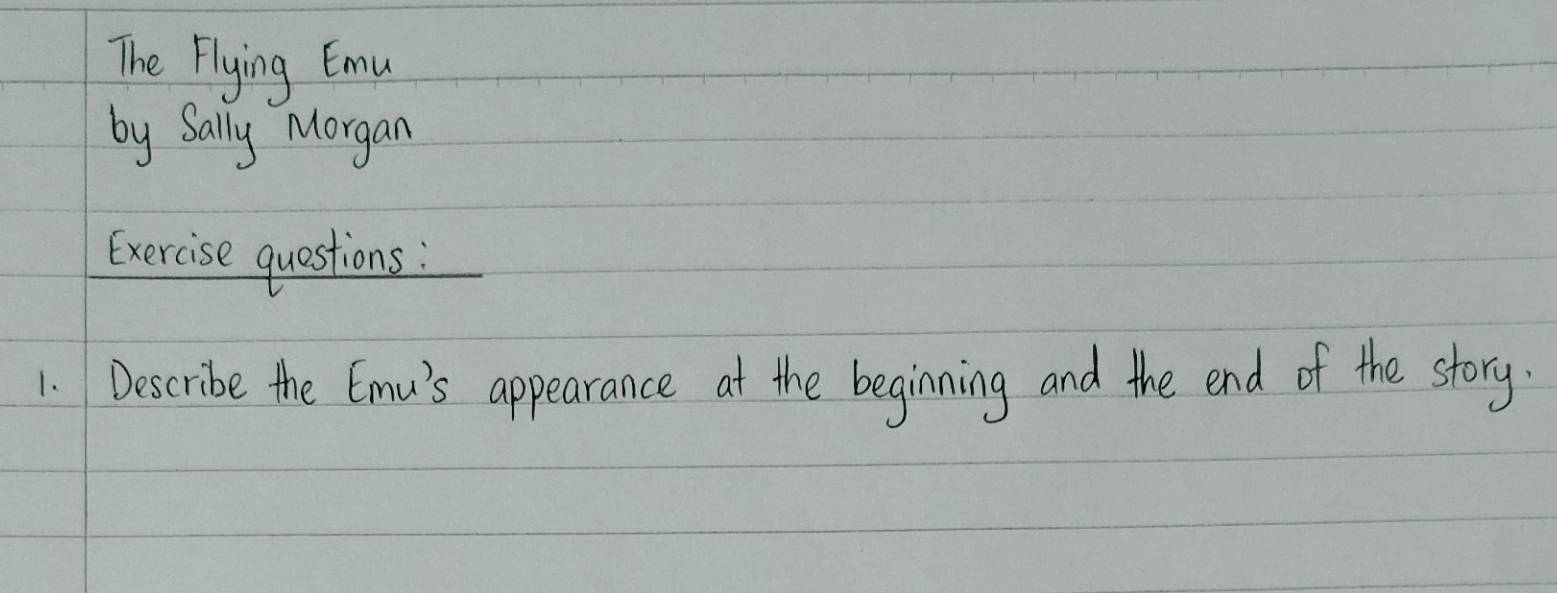 The Flying Emu
by Sally Morgan
Exercise questions:
1. Describe the Emu's appearance at the beginning and the end of the story.